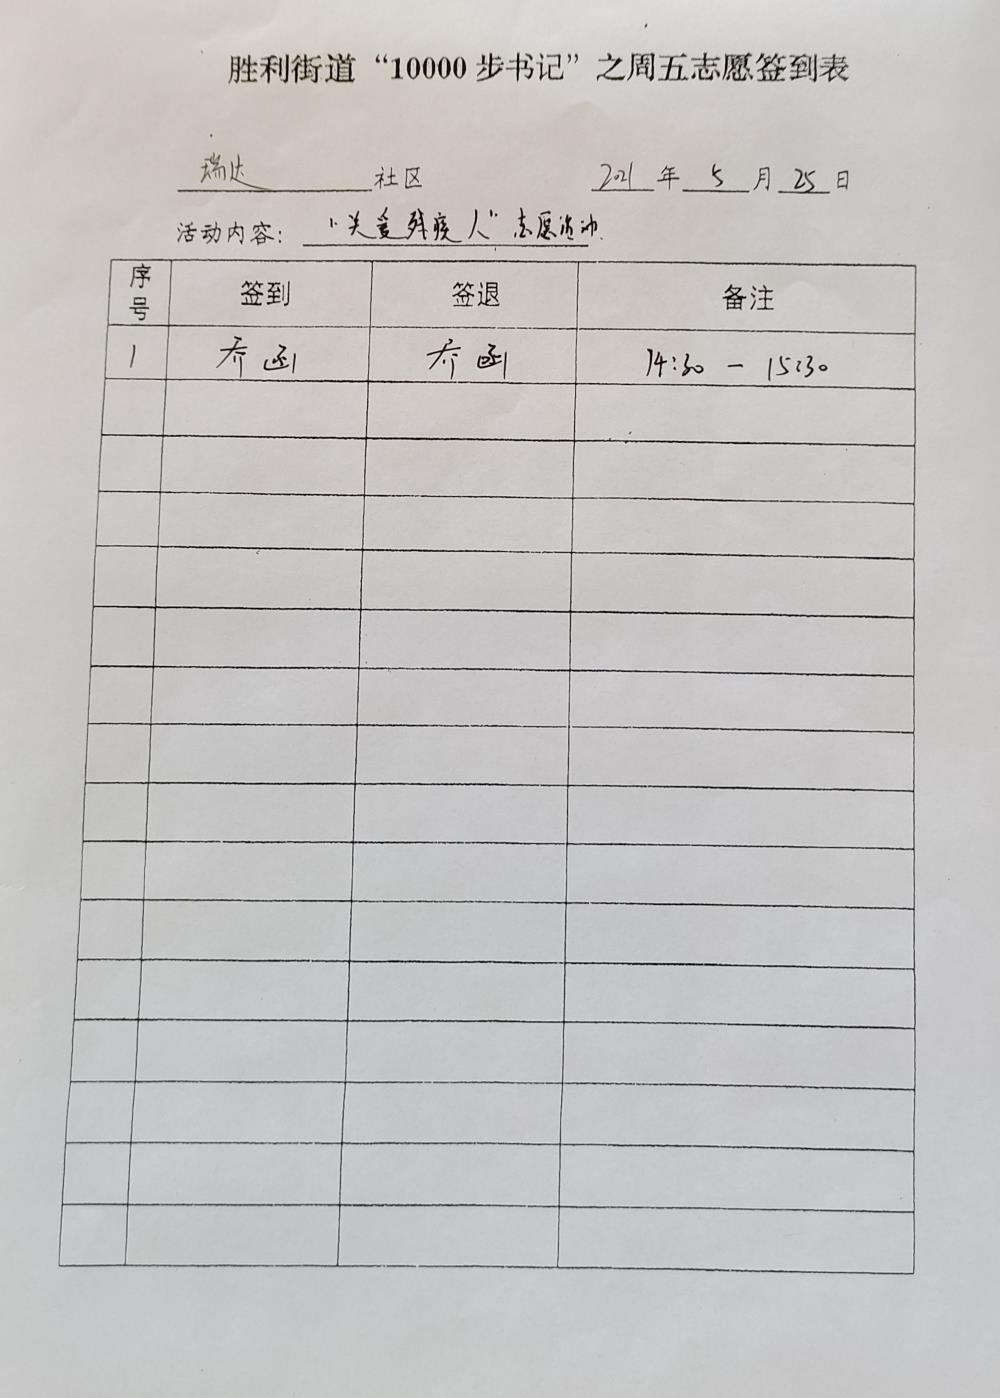 胜利街道“10000步书记”之周五志愿签到表
瑞达社区 2021年5月25日
活动内容：“关爱残疾人”志愿活动.
序号 签到 签退 备注
1 乔函 乔函 14:30 — 15:30